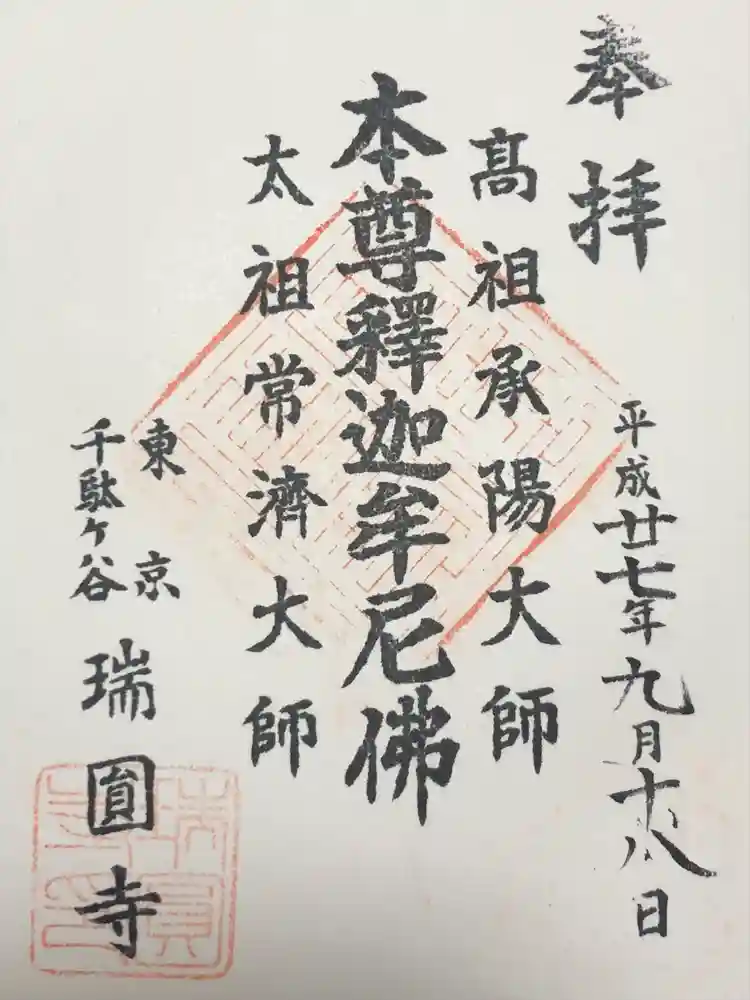 奉拝
平成廿七年九月十八日
髙祖承陽大師
本尊釋迦牟尼佛
太祖常濟大師
東京
千駄ケ谷
瑞圓寺